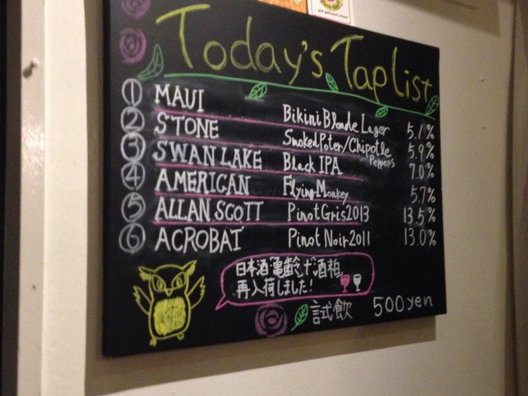 Today's Tap List
① MAUI Bikini Blonde Lager 5.1%
② STONE Smoked Poter/Chipotle Peppers 5.9%
③ SWAN LAKE Black IPA 7.0%
④ AMERICAN Flying Monkey 5.7%
⑤ ALLAN SCOTT Pinot Gris 2013 13.5%
⑥ ACROBAT Pinot Noir 2011 13.0%
日本酒亀齢と酒粕
再入荷しました!
試飲 500yen